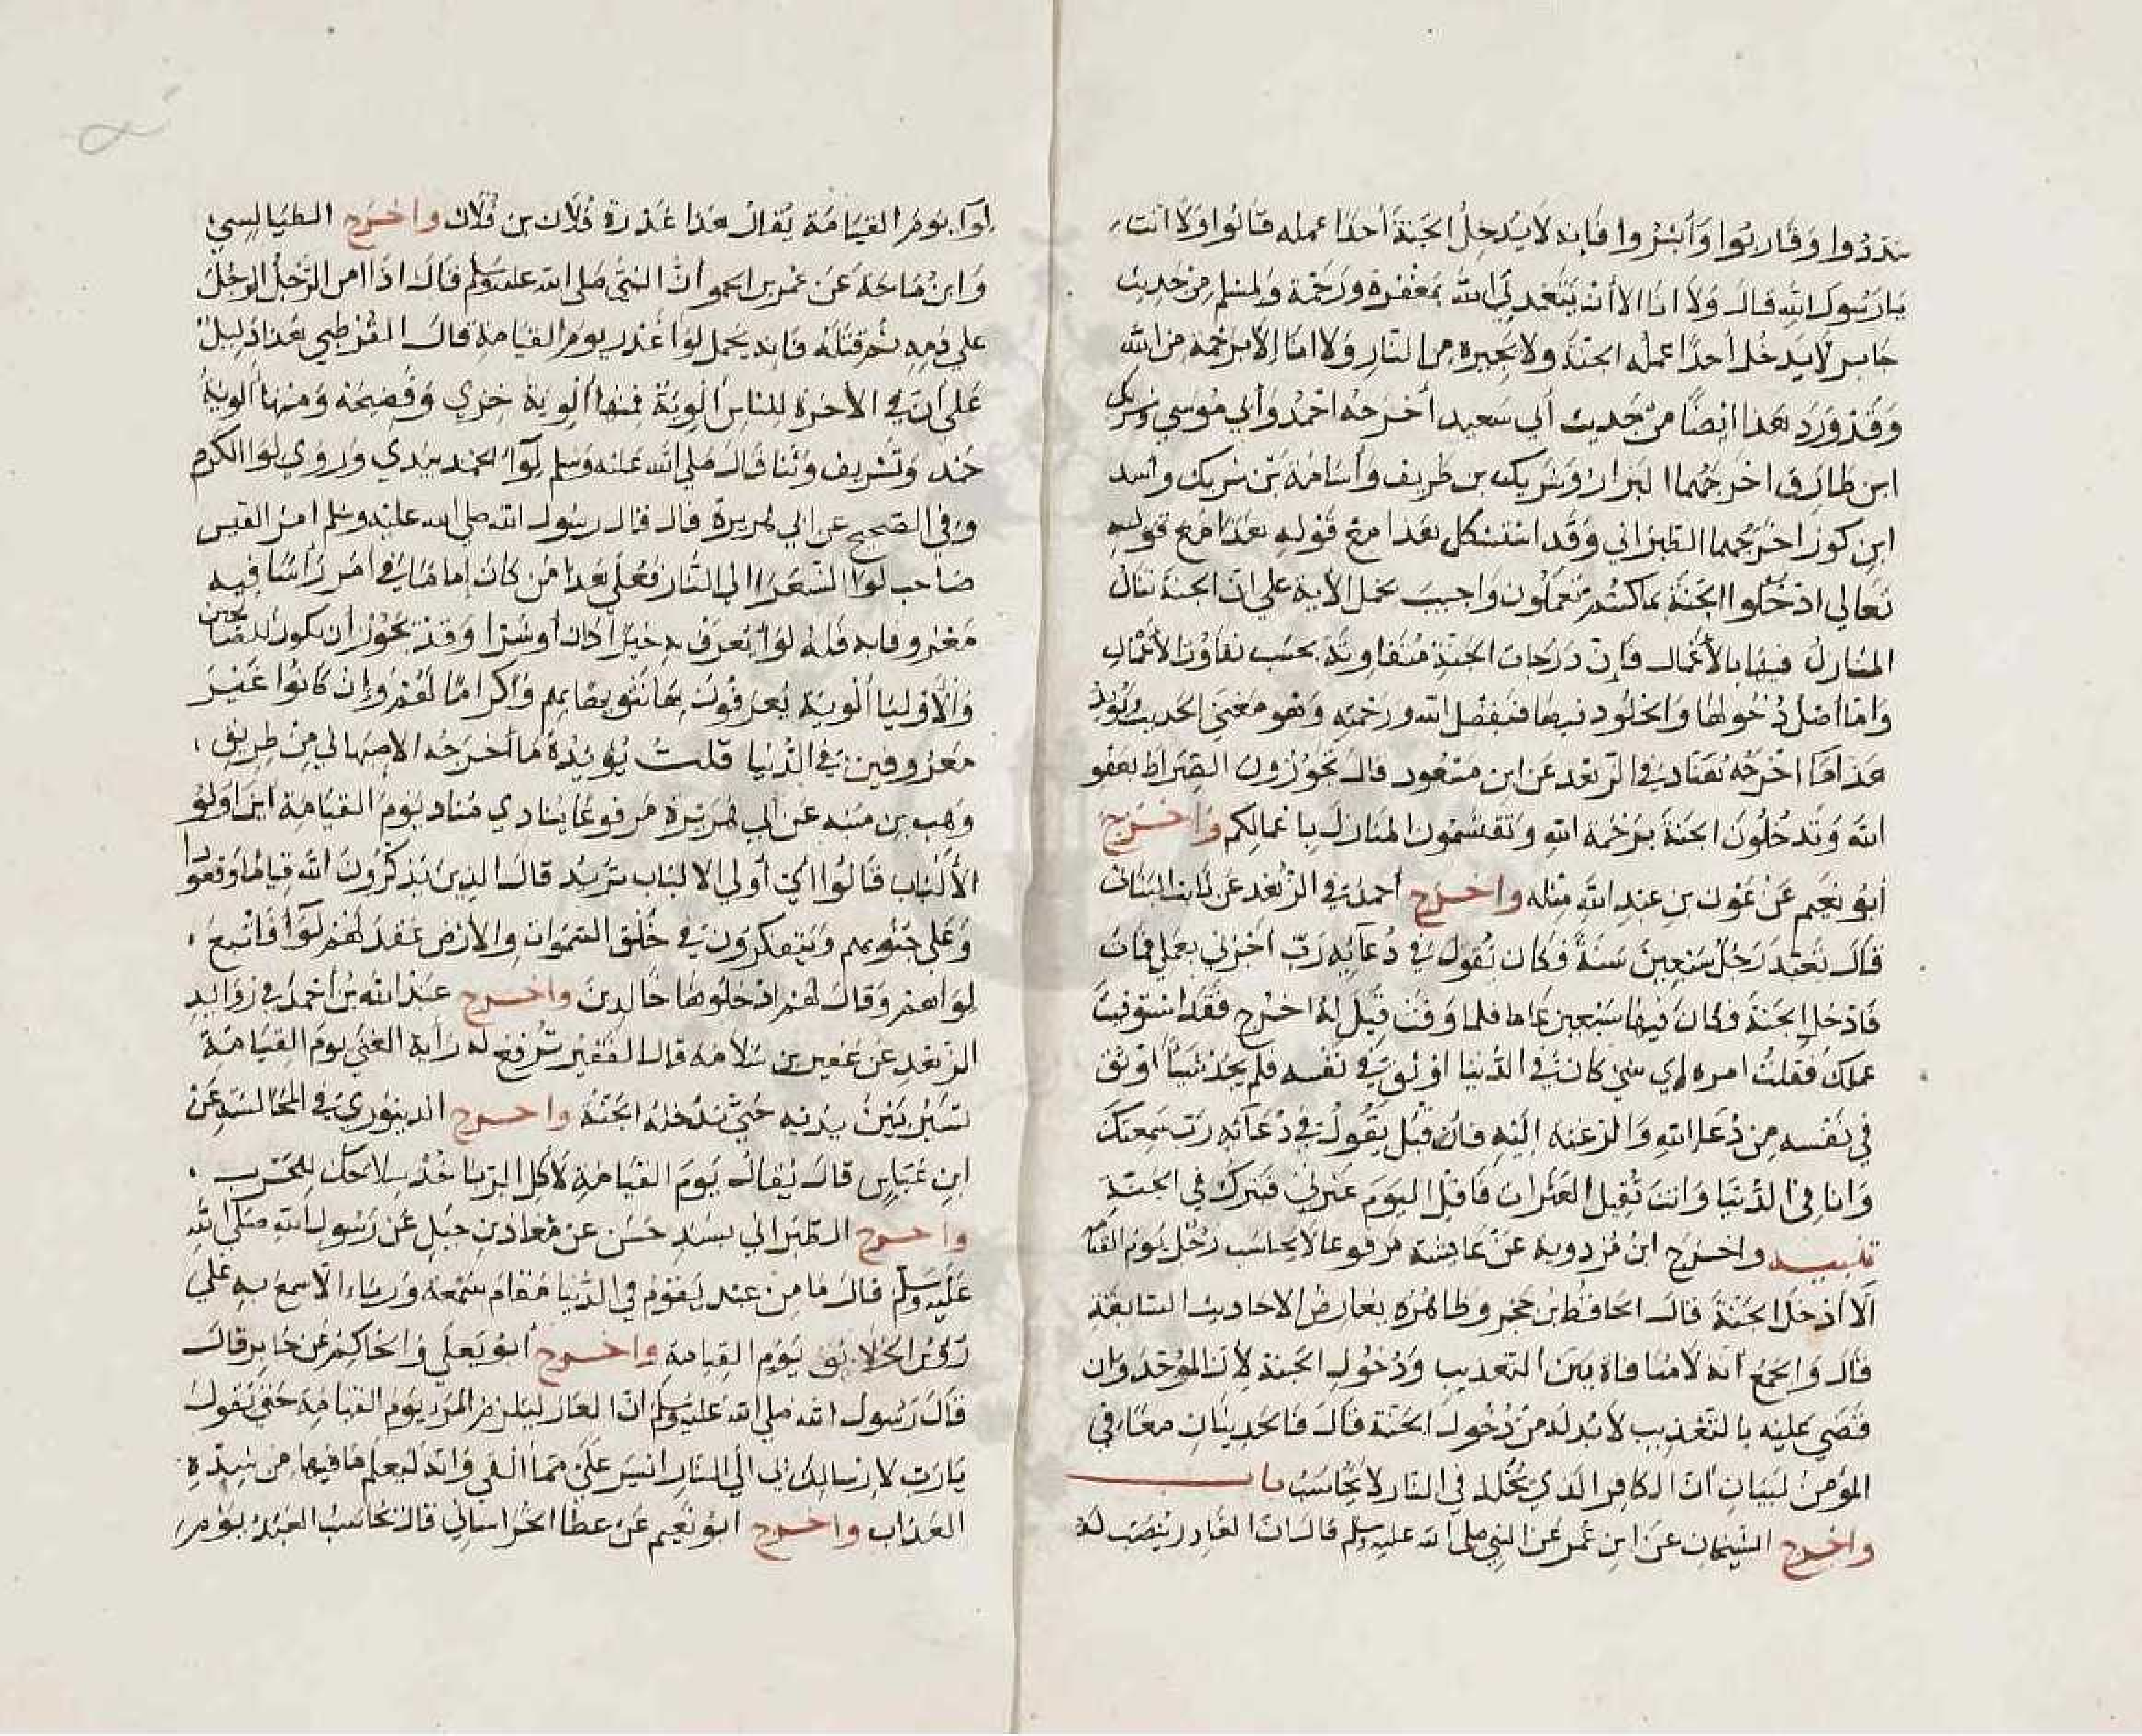 سددوا وقاربوا وأبشروا فإنه لا يدخل الجنة أحدا عمله قالوا ولا أنت
يا رسول الله قال ولا انا الا أن يتغمدني الله بمغفرة ورحمة ولمسلم من حديث
جابر لا يدخل أحدا عمله الجنة ولا يجيره من النار ولا انا إلا برحمة من الله
وقد ورد هذا ايضا من حديث أبي سعيد أخرجه احمد وأبي موسي وشريك
ابن طارق اخرجهما البزار وشريك بن طريف وأسامة بن شريك واسد
ابن كرز اخرجهما الطبراني وقد استشكل هذا مع قوله هذا مع قوله
تعالي ادخلوا الجنة بما كنتم تعملون واجيب بحمل الآية علي ان الجنة تنال
المنازل فيها بالأعمال فإن درجات الجنة متفاوتة بحسب تفاوت الأعمال
واما اصل دخولها والخلود فيها فبفضل الله ورحمته وهو معني الحديث ويؤيد
هذا ما اخرجه هناد في الزهد عن ابن مسعود قال تجوزون الصراط بعفو
الله وتدخلون الجنة برحمة الله وتقتسمون المنازل باعمالكم واخرج
أبو نعيم عن عون بن عبد الله مثله واخرج أحمد في الزهد عن ثابت البناني
قال تعبد رجل سبعين سنة فكان يقول في دعائه رب اجزني بعملي فمات
فادخل الجنة فكان فيها سبعين عاما فلما وفت قيل له اخرج فقد استوفيت
عملك فقلت امره اي شي كان في الدنيا اوثق في نفسه فلم يجد شيئا اوثق
في نفسه من دعا الله والرغبة اليه فان قبل يقول في دعائه رب سمعتك
وانا في الدنيا وانت تقيل العثرات فاقل اليوم عثرتي فترك في الجنة
تنبيه واخرج ابن مردويه عن عايشة مرفوعا لا يحاسب رجل يوم القيامة
الا أدخل الجنة قال الحافظ بن حجر وظاهره يعارض الاحاديث السابقة
قال والجمع انه لا منافاة بين التعذيب ودخول الجنة لأن الموحد وان
قضي عليه بالتعذيب لا بد له من دخول الجنة قال فالحديثان معا في
المؤمن لبيان أن الكافر الذي يخلد في النار لا يحاسب باب
واخرج الشيخان عن ابن عمر عن النبي صلي الله عليه وسلم قال ان الغادر ينصب له
لوآ يوم القيامة يقال هذا غدرة فلان بن فلان واخرج الطيالسي
وابن ماجة عن عمر بن الحمو أن النبي صلي الله عليه وسلم قال اذا امن الرجل الرجل
علي دمه ثم قتله فإنه يحمل لوا غدر يوم القيامة قال القرطبي هذا دليل
علي أن في الآخرة للناس ألوية فمنها ألوية خزي وفضيحة ومنها ألوية
حمد وتشريف وثنا قال صلي الله عليه وسلم لوآ الحمد بيدي وروي لوا الكرم
وفي الصحيح عن ابي هريرة قال قال رسول الله صلي الله عليه وسلم امر القيس
صاحب لوا الشعرا الي النار فعلي هذا من كان إماما في امر رأسا فيه
معروفا به فله لوا يعرف به خيرا كان أو شرا وقد يجوز أن يكون للصالحين
والأوليا ألوية يعرفون بها تنويها بهم واكراما لهم وإن كانوا غير
معروفين في الدنيا قلت يؤيده ما أخرجه الاصبهاني من طريق
وهب بن منبه عن ابي هريرة مرفوعا ينادي مناد يوم القيامة اين اولو
الألباب قالوا اي أولي الالباب تريد قال الذين يذكرون الله قياما وقعودا
وعلي جنوبهم ويتفكرون في خلق السموات والأرض عقد لهم لوآ فاتبع
لواهم وقال لهم ادخلوها خالدين واخرج عبد الله بن أحمد في زوايد
الزهد عن عفير بن سلامة قال الفقير ترفع له راية الغني يوم القيامة
تسير بين يديه حتي تدخله الجنة واخرج الدينوري في المجالسة عن
ابن عباس قال يقال يوم القيامة لآكل الربا خذ سلاحك للحرب
واخرج الطبراني بسند حسن عن معاذ بن جبل عن رسول الله صلي الله
عليه وسلم قال ما من عبد يقوم في الدنيا مقام سمعة ورياء الا سمع به علي
رؤس الخلائق يوم القيامة واخرج أبو يعلي والحاكم عن جابر قال
قال رسول الله صلي الله عليه وسلم ان العار ليلزم المرء يوم القيامة حتي يقول
يا رب لإرسالك بي الي النار ايسر علي مما القي وانه ليعلم ما فيها من شدة
العذاب واخرج ابو نعيم عن عطا الخراساني قال يحاسب العبد يوم